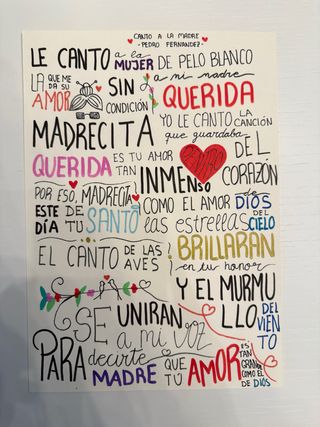 CANTO A LA MADRE
- PEDRO FERNANDEZ -
LE CANTO a la MUJER DE PELO BLANCO
LA QUE ME DA SU AMOR SIN CONDICIÓN a mi madre QUERIDA
MADRECITA YO LE CANTO LA CANCIÓN que guardaba DEL CORAZÓN
QUERIDA ES TU AMOR TAN INMENSO
POR ESO, MADRECITA COMO EL AMOR de DIOS
ESTE DÍA DE TU SANTO las estrellas DEL CIELO
BRILLARÁN en tu honor
EL CANTO DE LAS AVES
Y EL MURMULLO DEL VIENTO
SE UNIRAN a mi voz
PARA decirte MADRE QUE TÚ AMOR ES TAN GRANDE COMO EL DE DIOS